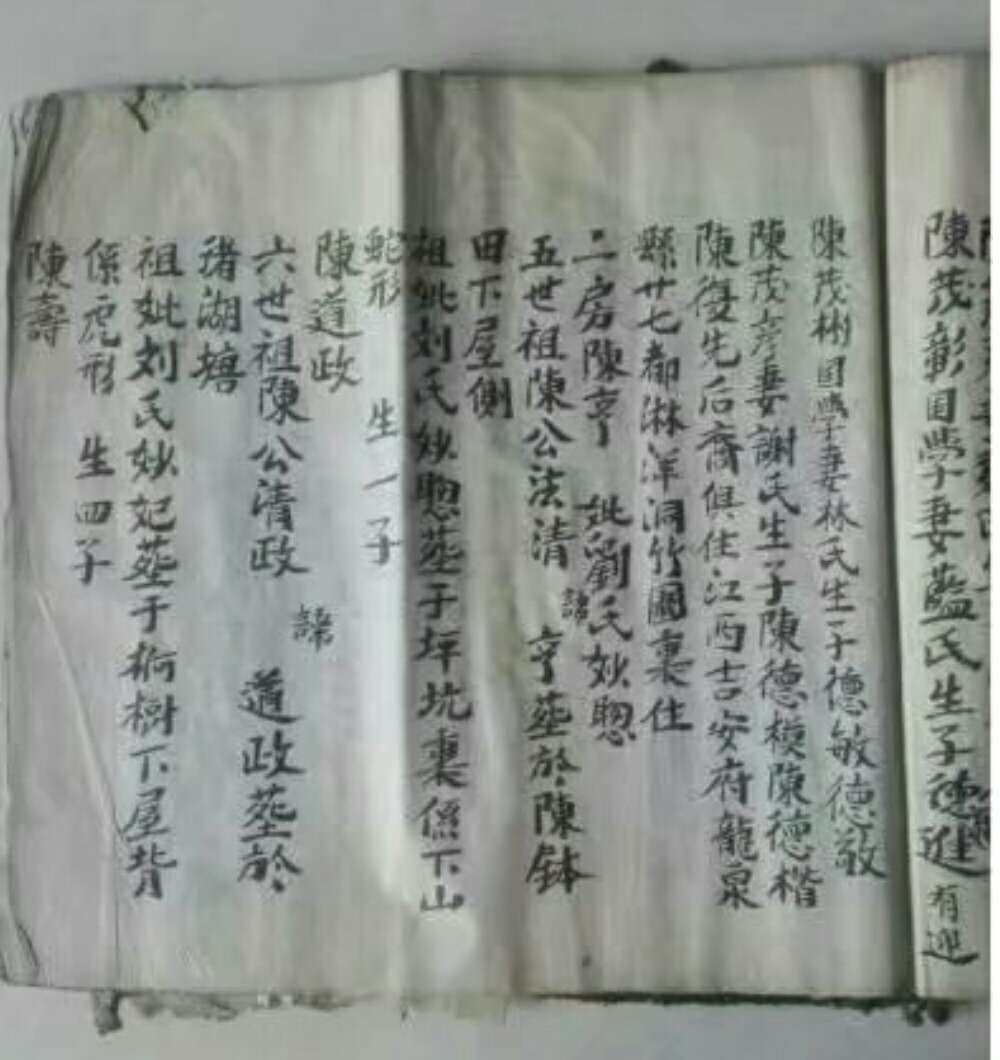 陳茂彰國學妻藍氏生子德進 有迎
陳茂彬國學妻林氏生子德敏德敬
陳茂彦妻謝氏生子陳德模陳德楷
陳復先后裔俱住江西吉安府龍泉
縣廿七都淋洋洞竹園裏住
二房陳亨 妣劉氏妙聰
五世祖陳公法清 諱 亨葬於陳鉢
田下屋側
祖妣刘氏妙聰葬于坪坑裏係下山
蛇形 生一子
陳道政
六世祖陳公清政 諱 道政葬於
湖塘
祖妣刘氏妙妃葬于樹下屋背
係虎形 生四子
陳壽